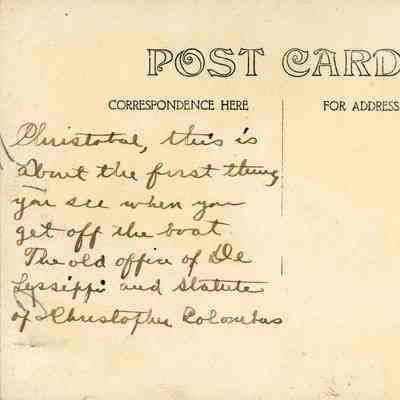 POST CARD
CORRESPONDENCE HERE
FOR ADDRESS
Christobal, this is
about the first thing
you see when you
get off the boat
The old office of De
Lessippi and Statute
of Christopher Colombus